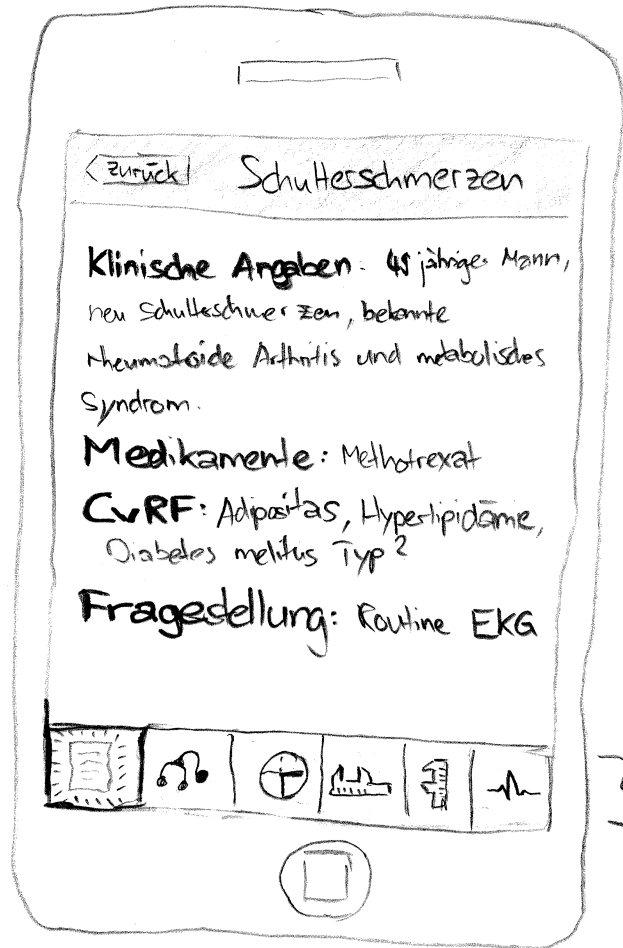 Zurück
Schulterschmerzen
Klinische Angaben: 45 jähriger Mann,
neu Schulterschmerzen, bekannte
rheumatoide Arthritis und metabolisches
Syndrom.
Medikamente: Methotrexat
CvRF: Adipositas, Hyperlipidämie,
Diabetes melitus Typ 2
Fragestellung: Routine EKG